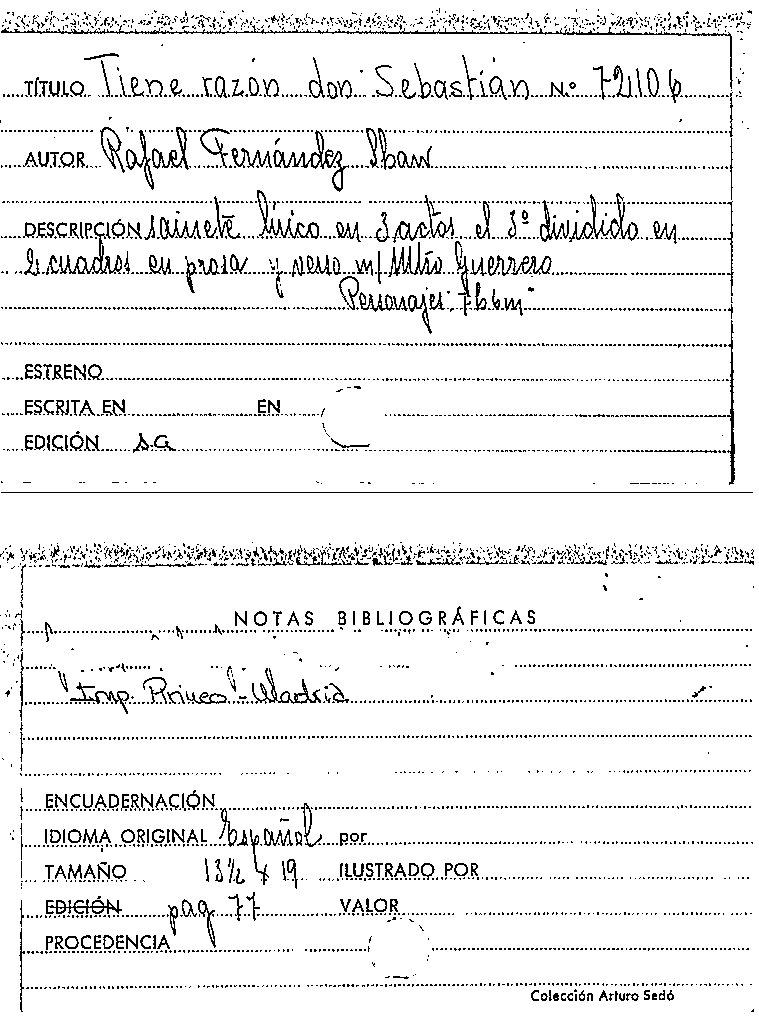 TÍTULO Tiene razón don Sebastián N.º 72106
AUTOR Rafael Fernández Shaw
DESCRIPCIÓN sainete lírico en 3 actos el 3º dividido en
2 cuadros en prosa y verso m/ Mtro Guerrero
Personajes: 7h 6m
ESTRENO
ESCRITA EN EN
EDICIÓN s.a
NOTAS BIBLIOGRÁFICAS
"Imp. Pirineo" - Madrid
ENCUADERNACIÓN
IDIOMA ORIGINAL Español por
TAMAÑO 13½ x 19 ILUSTRADO POR
EDICIÓN pag 77 VALOR
PROCEDENCIA
Colección Arturo Sedó